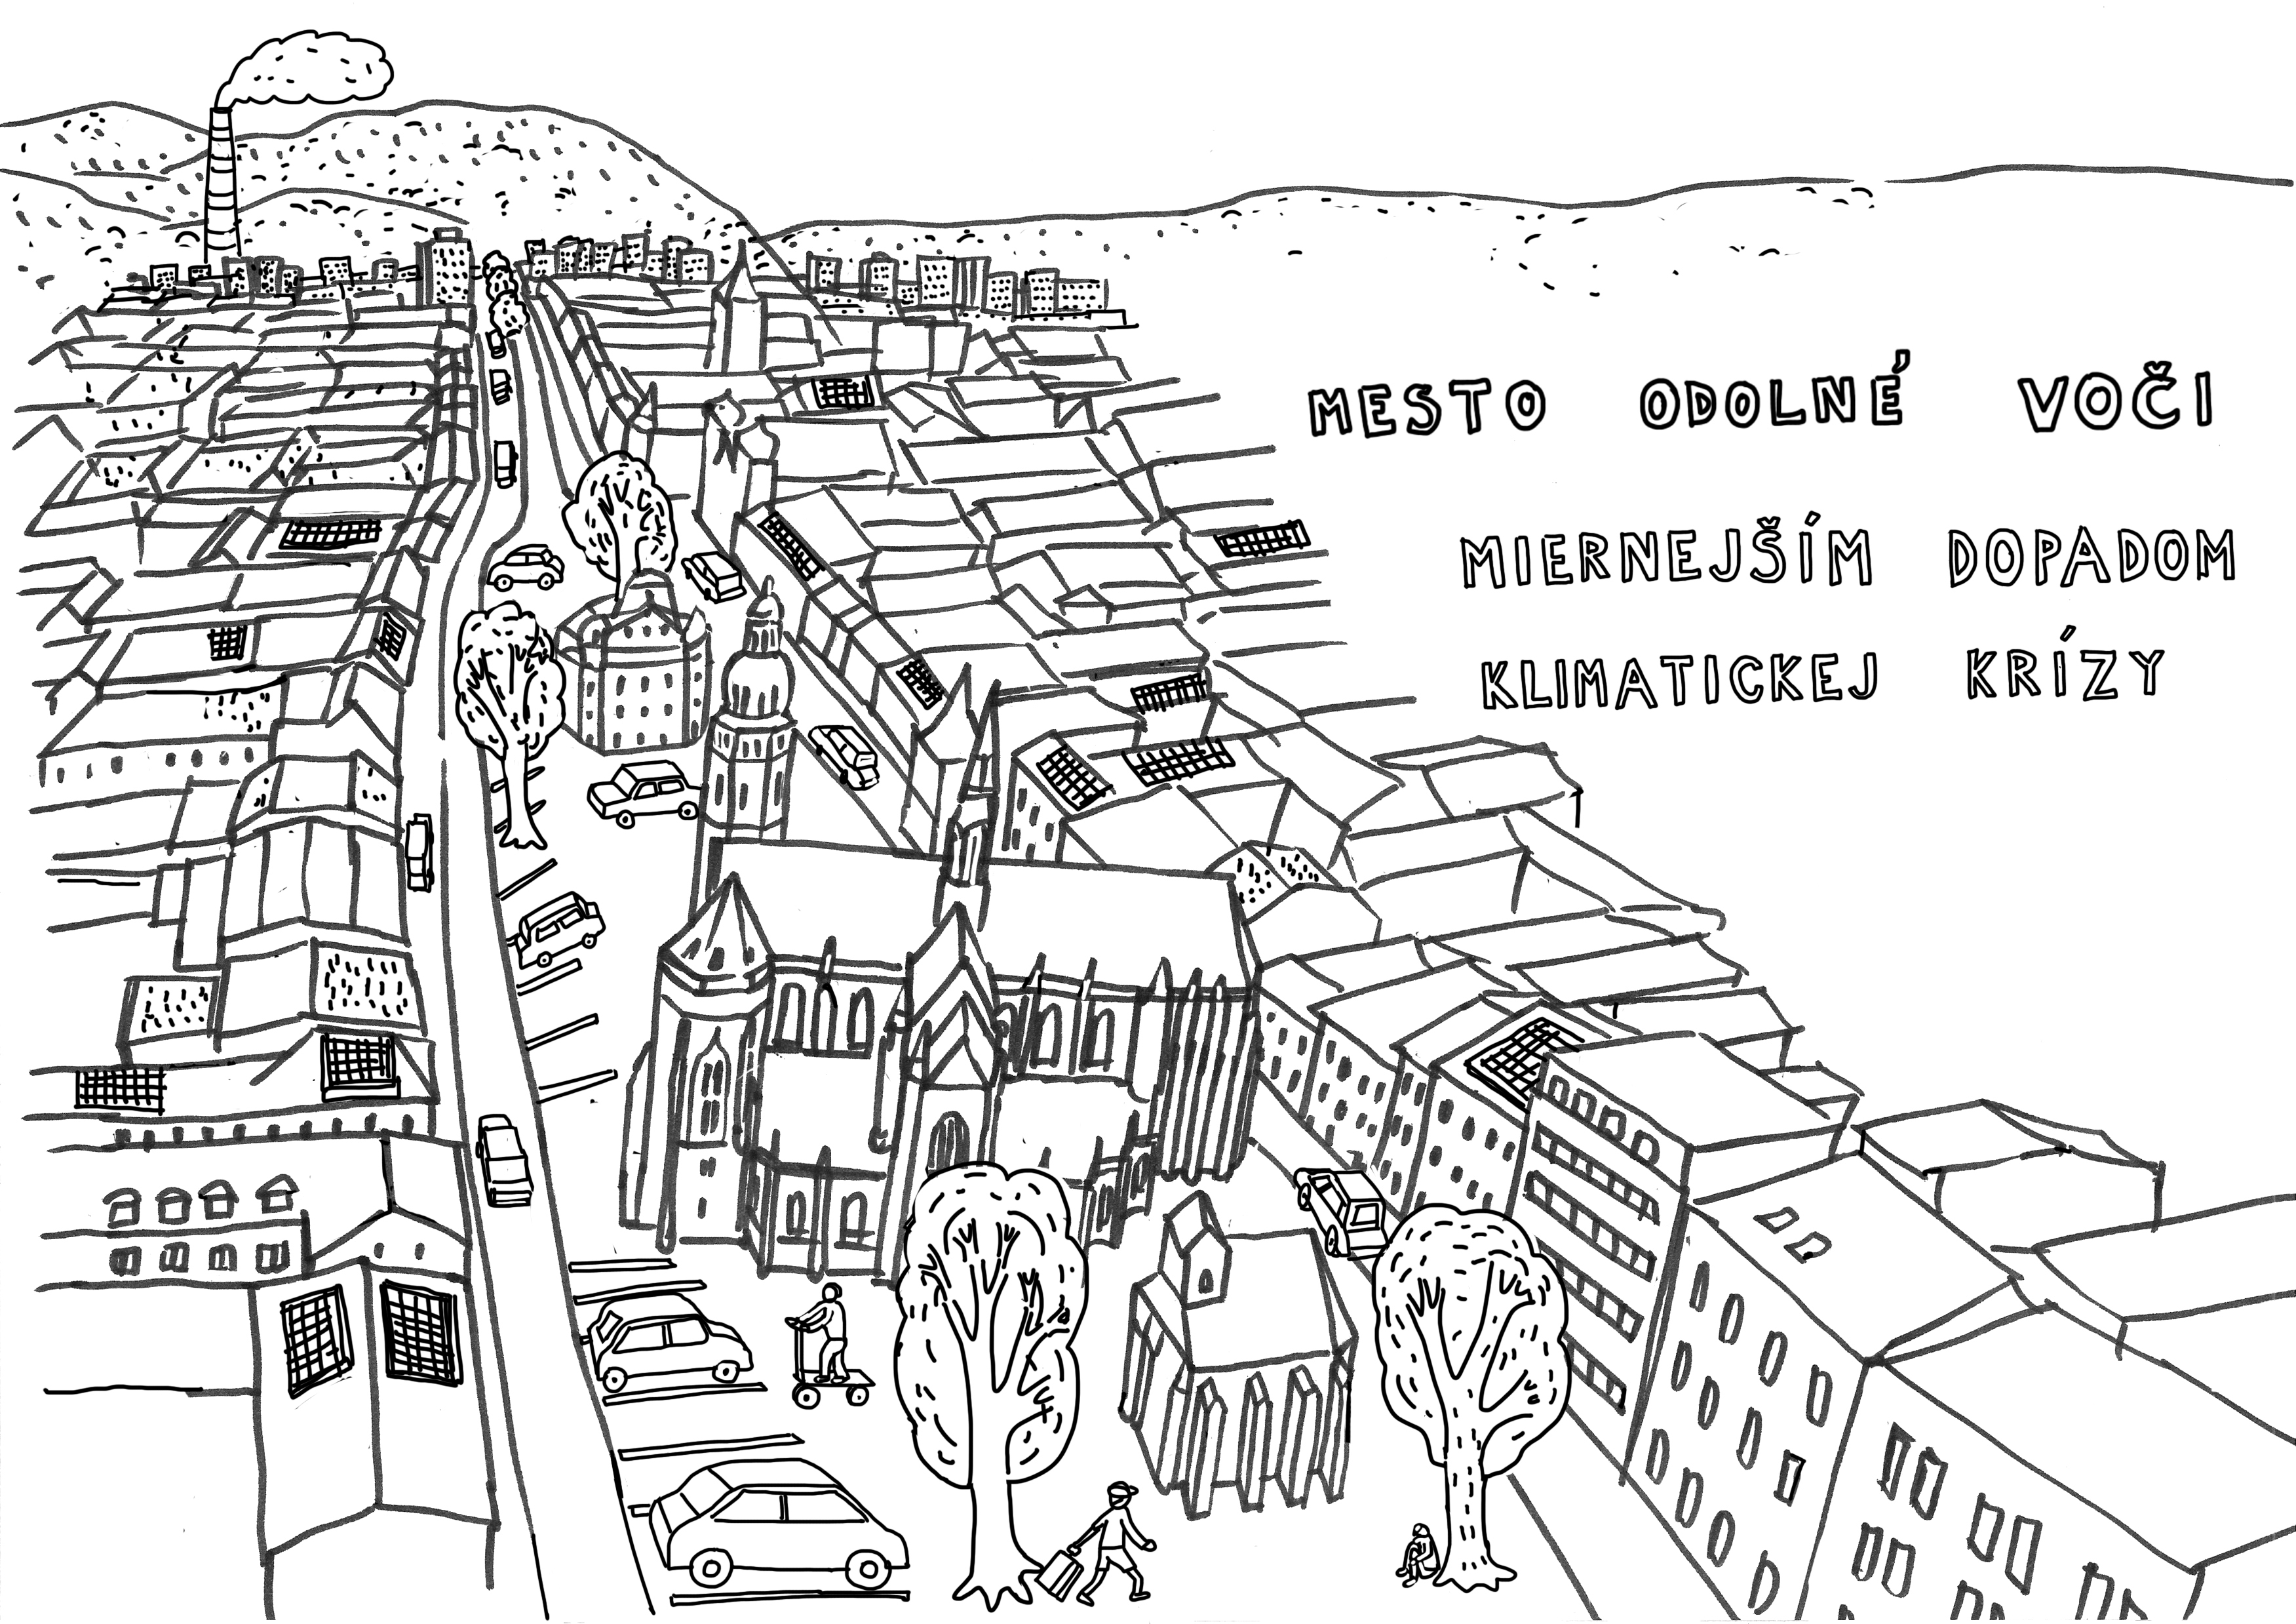 MESTO ODOLNÉ VOČI
MIERNEJŠÍM DOPADOM
KLIMATICKEJ KRÍZY